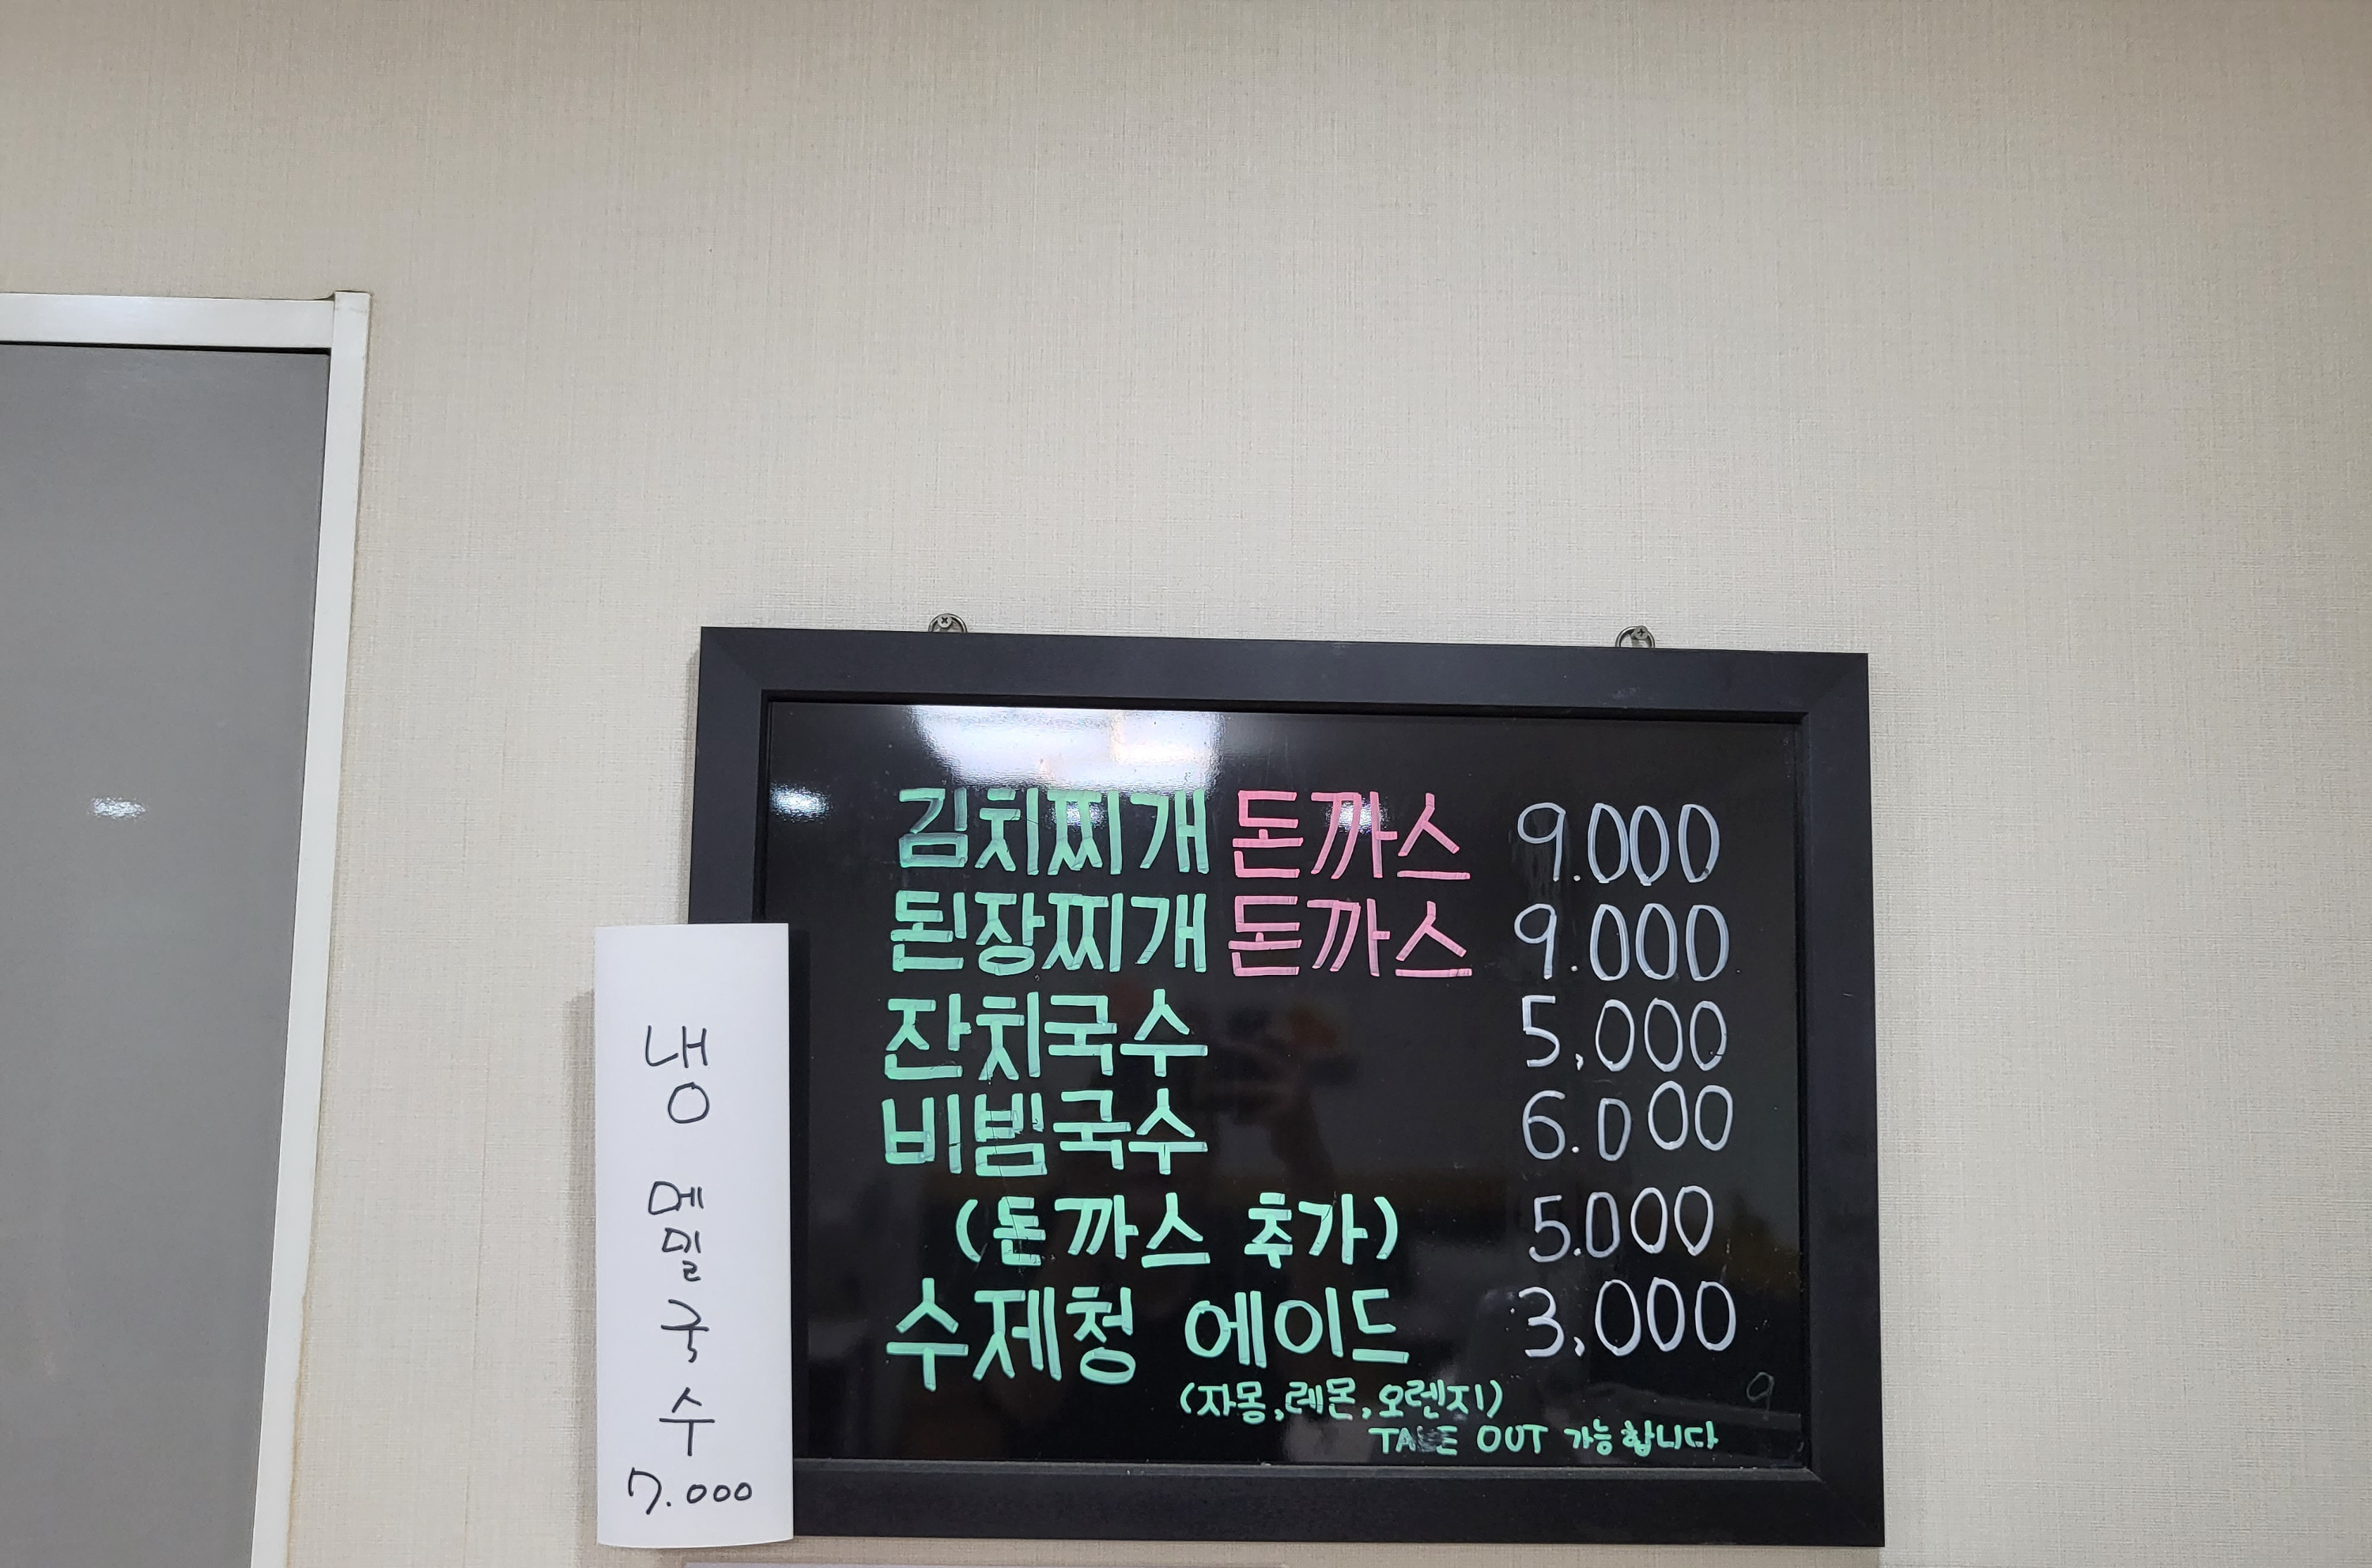 김치찌개 돈까스 9.000
된장찌개 돈까스 9.000
잔치국수 5,000
비빔국수 6.000
(돈까스 추가) 5.000
수제청 에이드 3,000
(자몽,레몬,오렌지)
TAKE OUT 가능합니다
냉
메
밀
국
수
7.000